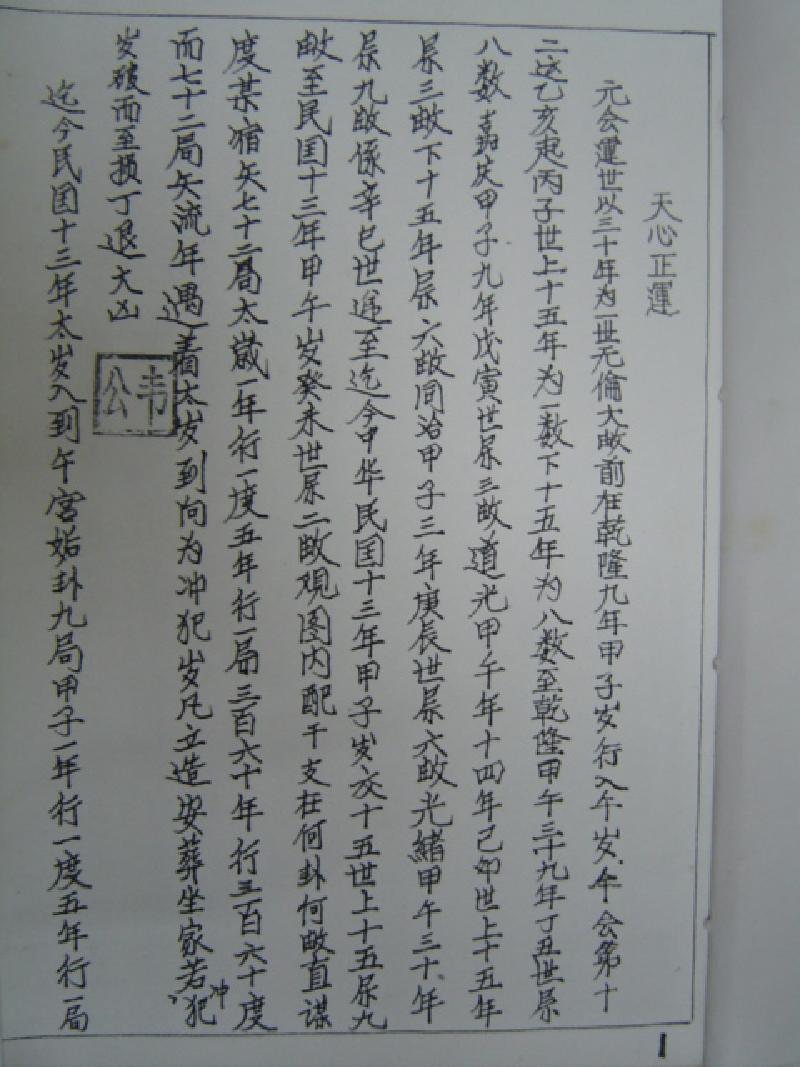 天心正運
元会運世以三十年为一世无倫大畝前在乾隆九年甲子岁行入午岁午会第十
二运乙亥起丙子世上十五年为一数下十五年为八数至乾隆甲午三十九年丁丑世屎
八数嘉庆甲子九年戊寅世屎三畝道光甲午年十四年己卯世上十五年
屎三畝下十五年屎六畝同治甲子三年庚辰世屎六畝光緒甲午三十年
屎九畝係辛巳世递至迄今中华民国十三年甲子岁交十五世上十五屎九
畝至民国十三年甲午岁癸未世屎二畝观图内配干支在何卦何畝直谋
度某宿矢七十二局太歲一年行一度五年行一局三百六十年行三百六十度
而七十二局矢流年遇着太岁到向为冲犯岁凡立造安葬坐家若冲犯
岁破而至损丁退大凶
韦公
迄今民国十三年太岁入到午宮姤卦九局甲子一年行一度五年行一局
1